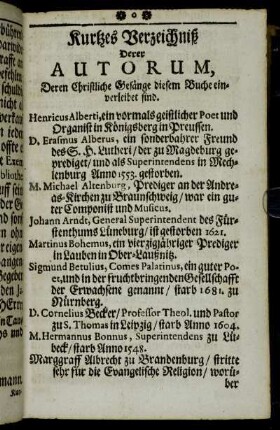 Kurtzes Verzeichniß
Derer
AUTORUM,
Deren Christliche Gesänge diesem Buche ein-
verleibet sind.
Henricus Alberti, ein vormals geistlicher Poet und
Organist in Königsberg in Preussen.
D. Erasmus Alberus, ein sonderbahrer Freund
des S. H. Lutheri, der zu Magdeburg ge-
prediget/ und als Superintendens in Mech-
lenburg Anno 1553. gestorben.
M. Michael Altenburg, Prediger an der Andre-
as-Kirchen zu Braunschweig/ war ein gu-
ter Componist und Musicus.
Johann Arndt, General Superintendent des Für-
stenthums Lüneburg/ ist gestorben 1621.
Martinus Bohemus, ein vierzigjähriger Prediger
in Lauben in Ober-Laußnitz.
Sigmund Betulius, Comes Palatinus, ein guter Po-
et, und in der fruchtbringenden Gesellschafft
der Erwachsene genannt/ starb 1681. zu
Nürnberg.
D. Cornelius Becker/ Professor Theol. und Pastor
zu S. Thomas in Leipzig/ starb Anno 1604.
M. Hermannus Bonnus, Superintendens zu Lü-
beck/ starb Anno 1548.
Marggraff Albrecht zu Brandenburg/ stritte
sehr für die Evangelische Religion/ worü-
ber